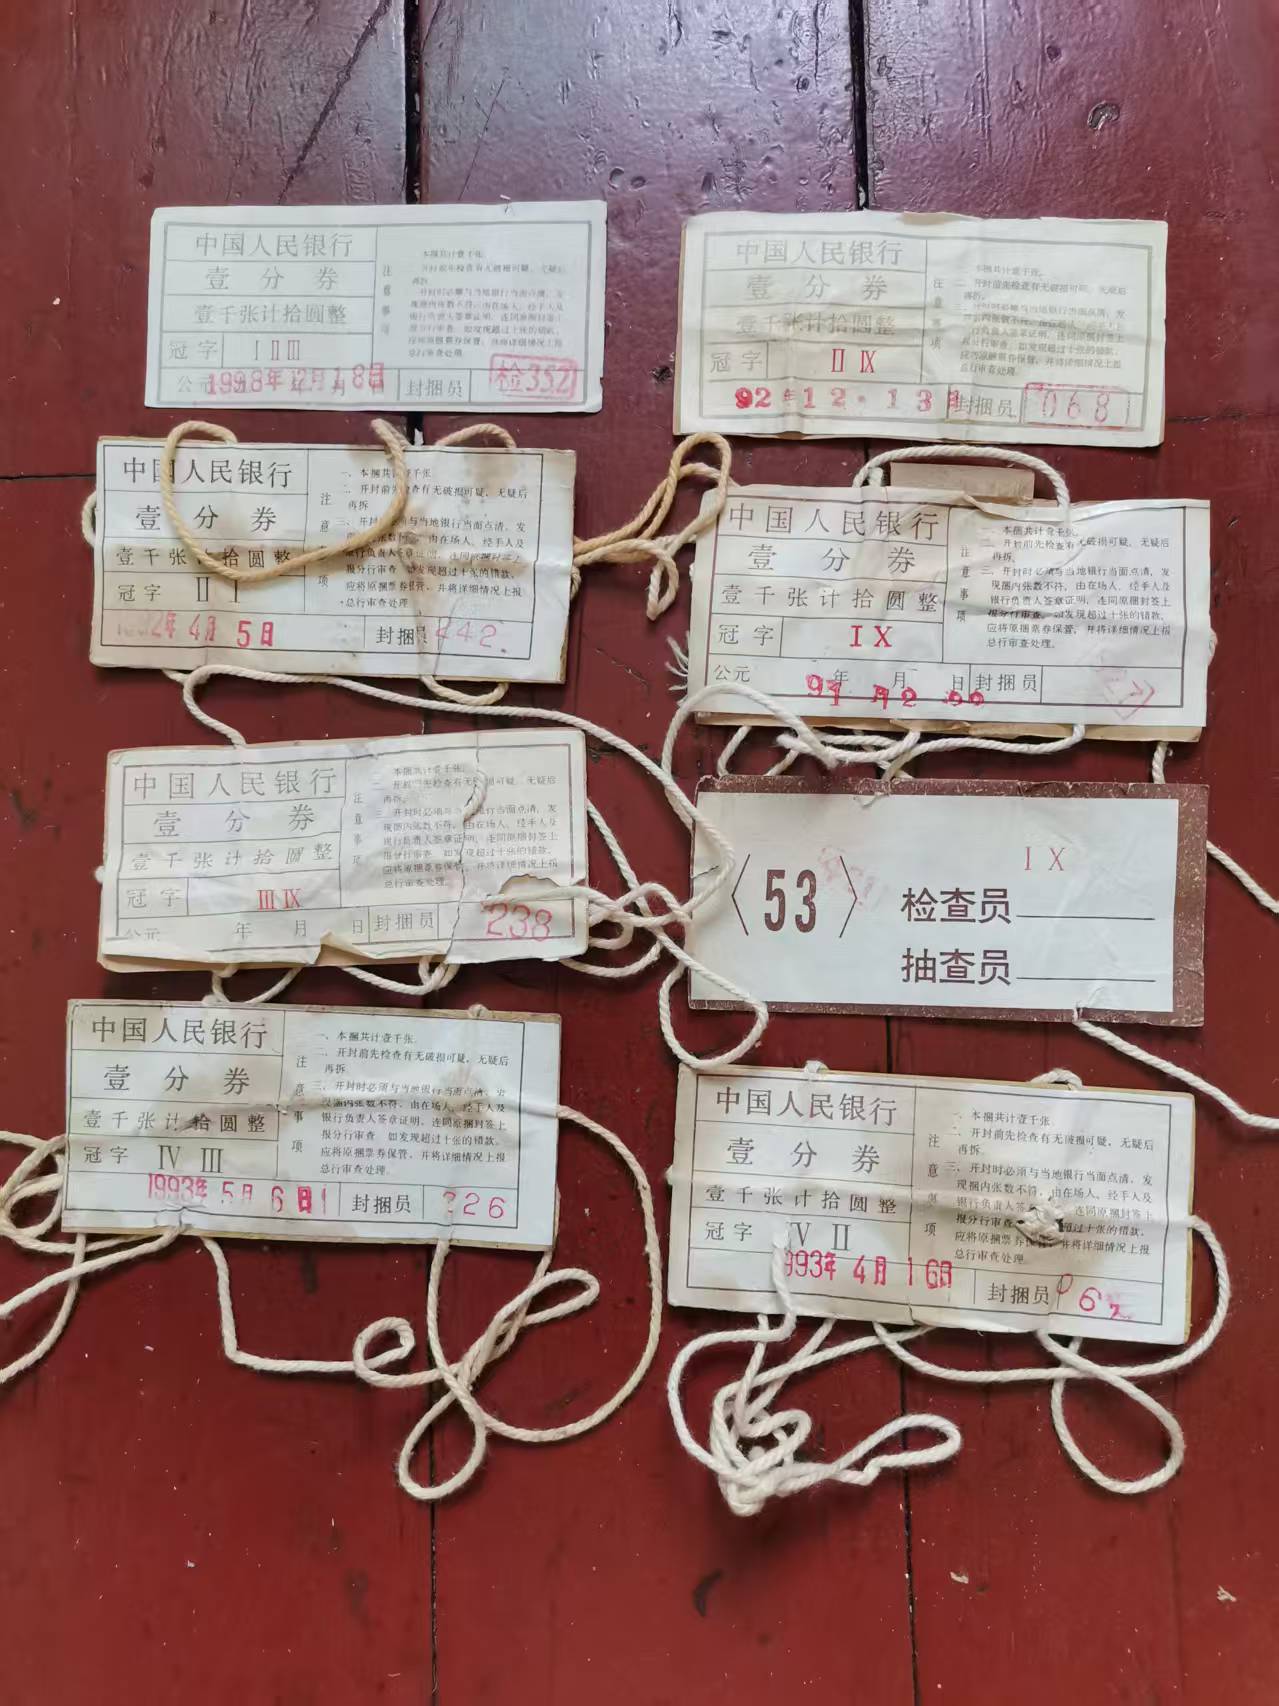 中国人民银行
壹分券
壹千张计拾圆整
冠字 I II III
公元 1998年12月18日 封捆员 检352
注意事项
本捆共计壹千张.
开封前先检查有无破损可疑，无疑后
再拆.
开封时必须与当地银行当面点清，发
现捆内张数不符，由在场人，经手人及
银行负责人签章证明，连同原捆封签上
报分行审查 如发现超过十张的错款，
应将原捆票券保管，并将详细情况上报
总行审查处理.
中国人民银行
壹分券
壹千张计拾圆整
冠字 II IX
92年12·13日 封捆员 068
注意事项
一、本捆共计壹千张.
二、开封前先检查有无破损可疑，无疑后
再拆.
银行负责人签章证明，连同原捆封签上
报分行审查 如发现超过十张的错款，
应将原捆票券保管，并将详细情况上报
总行审查处理.
中国人民银行
壹分券
壹千张计拾圆整
冠字 II I
4月5日 封捆员 242.
注意事项
一、本捆共计壹千张.
二、开封前先检查有无破损可疑，无疑后
再拆
三、开封时必须与当地银行当面点清，发
由在场人，经手人及
银行负责人签章证明，连同原捆封签上
报分行审查 如发现超过十张的错款，
应将原捆票券保管，并将详细情况上报
总行审查处理
中国人民银行
壹分券
壹千张计拾圆整
冠字 IX
公元 年 月 日 封捆员
注意事项
一、本捆共计壹千张.
二、开封前先检查有无破损可疑，无疑后
再拆.
三、开封时必须与当地银行当面点清，发
现捆内张数不符，由在场人，经手人及
银行负责人签章证明，连同原捆封签上
报分行审查 如发现超过十张的错款，
应将原捆票券保管，并将详细情况上报
总行审查处理.
中国人民银行
壹分券
壹千张计拾圆整
冠字 III IX
公元 年 月 日 封捆员 238
注意事项
本捆共计壹千张.
再拆.
三、开封时必须与当地银行当面点清，发
现捆内张数不符，由在场人，经手人及
银行负责人签章证明，连同原捆封签上
报分行审查 如发现超过十张的错款，
应将原捆票券保管，并将详细情况上报
总行审查处理.
〈53〉
I X
检查员
抽查员
中国人民银行
壹分券
壹千张计拾圆整
冠字 IV III
1993年5月6日 封捆员 226
注意事项
一、本捆共计壹千张.
二、开封前先检查有无破损可疑，无疑后
再拆
三、开封时必须与当地银行当面点清，发
现捆内张数不符，由在场人，经手人及
银行负责人签章证明，连同原捆封签上
报分行审查 如发现超过十张的错款，
应将原捆票券保管，并将详细情况上报
总行审查处理
中国人民银行
壹分券
壹千张计拾圆整
冠字 IV II
993年4月16日 封捆员 062
注意事项
一、本捆共计壹千张.
二、开封前先检查有无破损可疑，无疑后
再拆
三、开封时必须与当地银行当面点清，发
现捆内张数不符，由在场人，经手人及
银行负责人签章 连同原捆封签上
报分行审查 超过十张的错款，
应将原捆票券保管，并将详细情况上报
总行审查处理